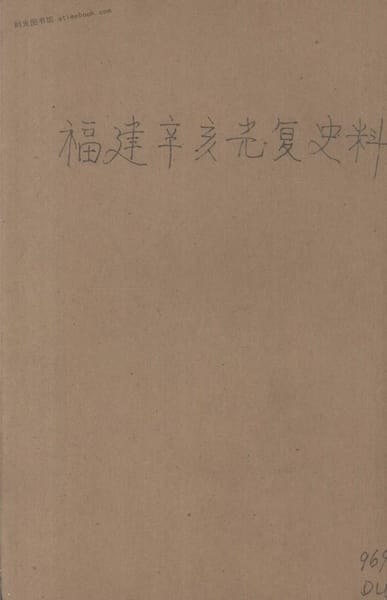 时光图书馆 atimebook.com
福建辛亥光复史料
969
DL